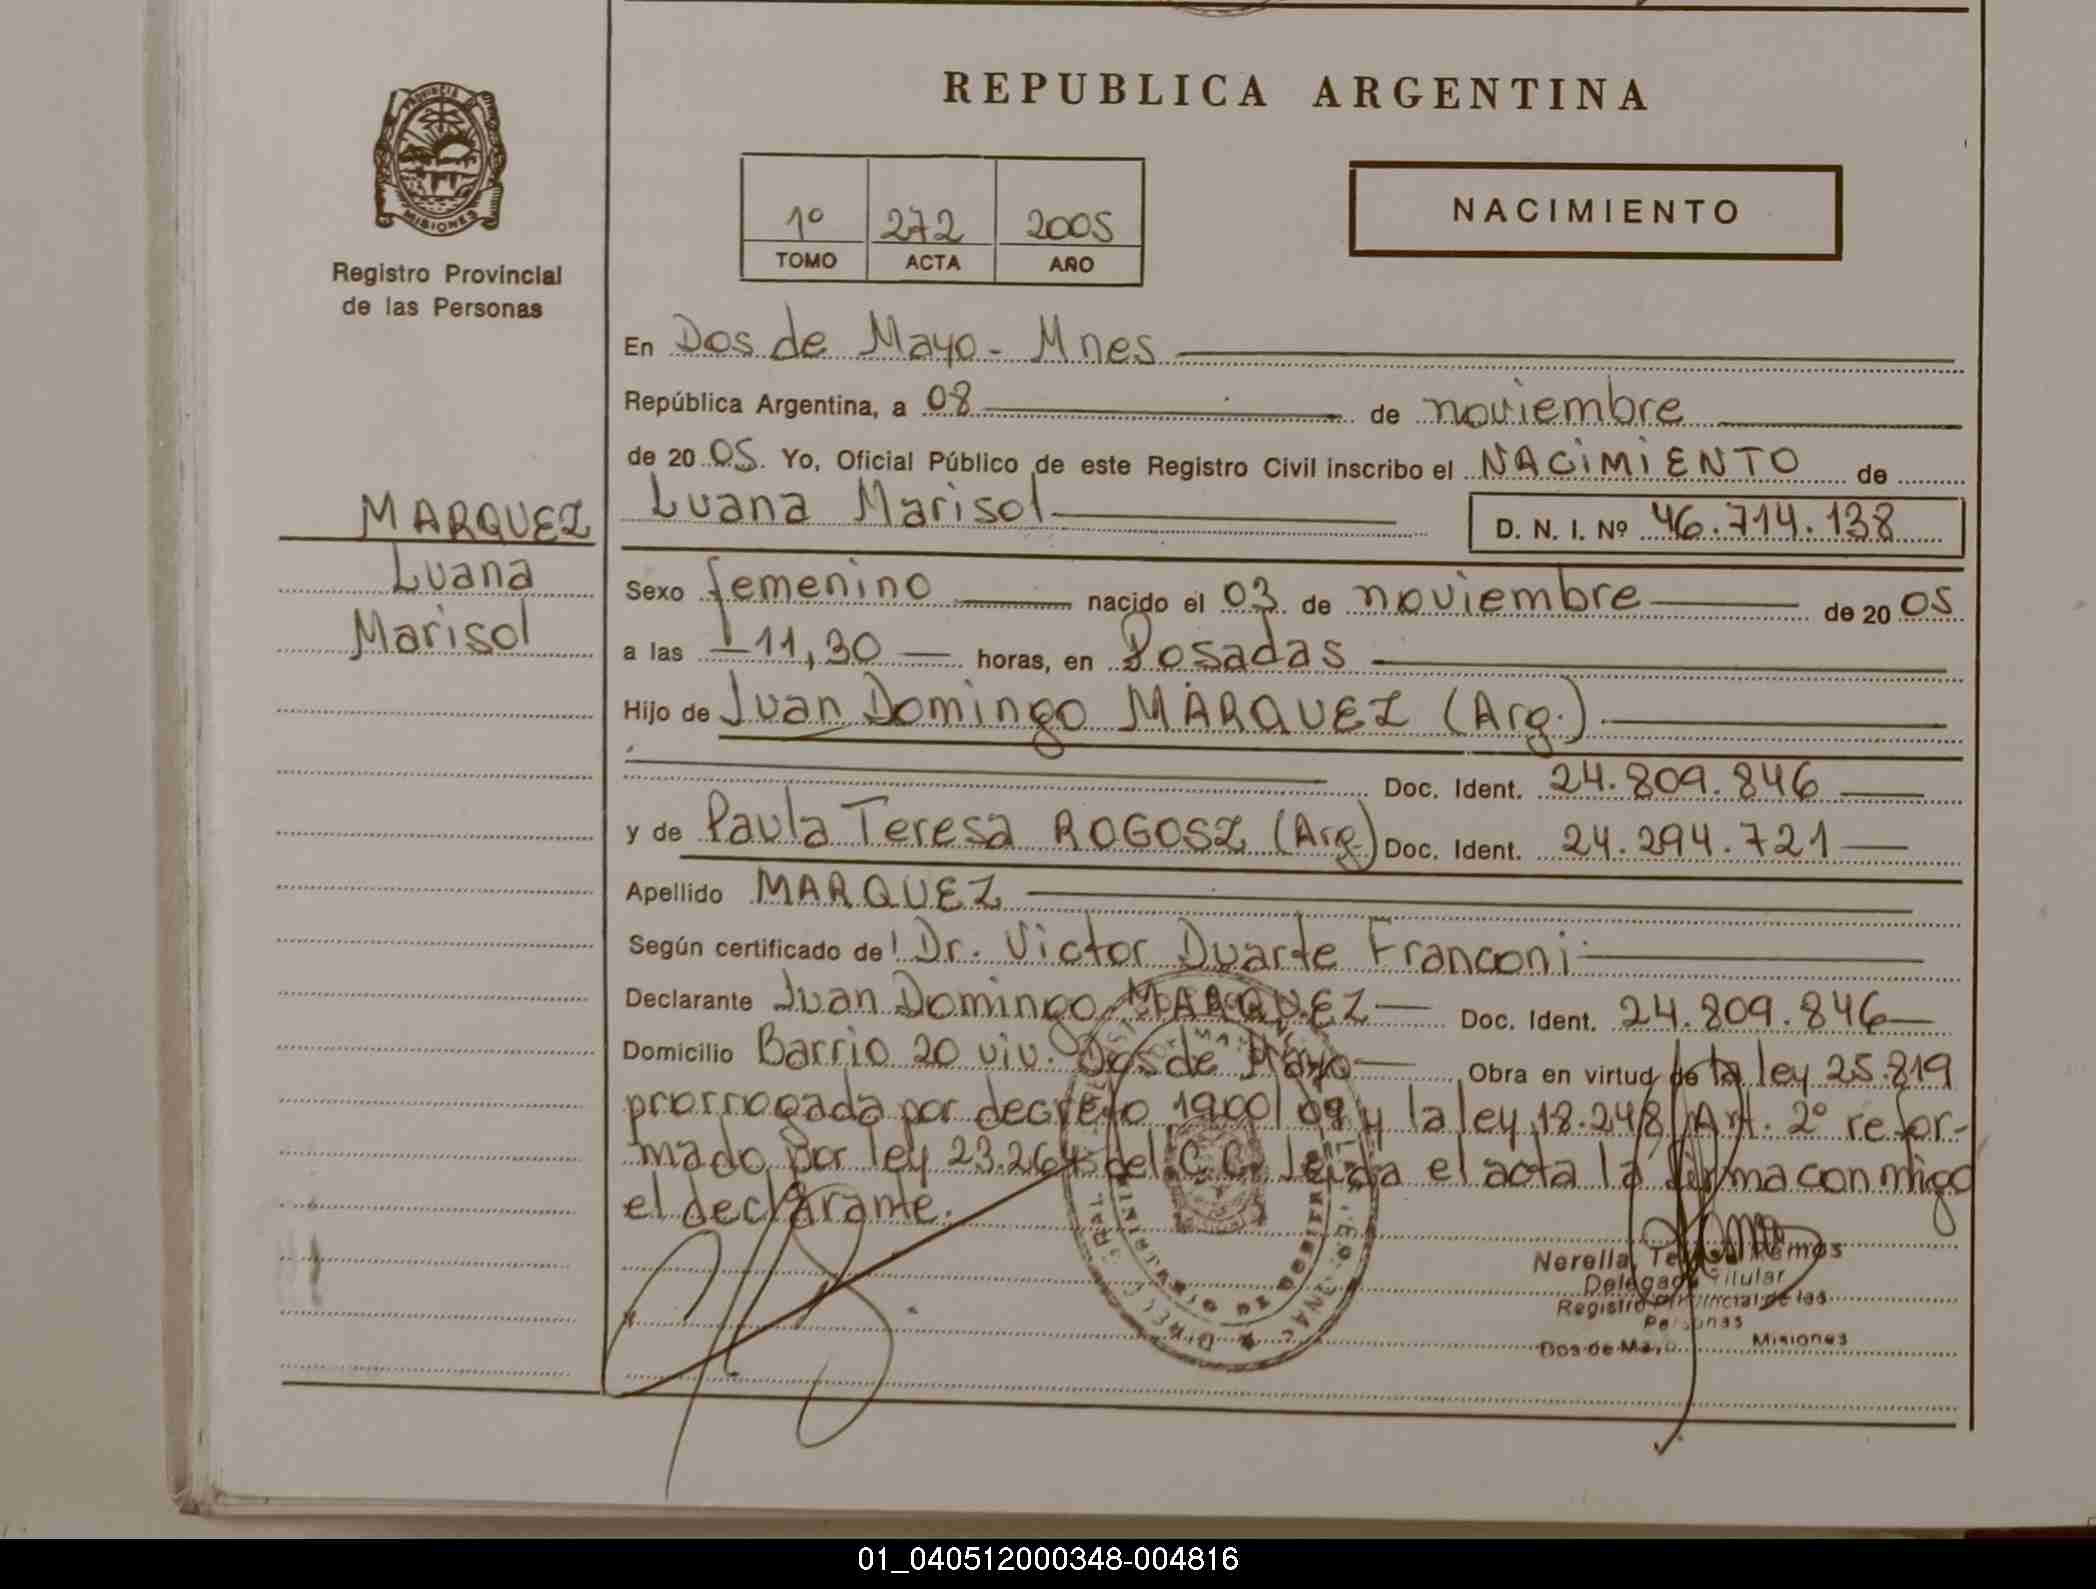 PROVINCIA D
MISIONES
Registro Provincial
de las Personas
MARQUEZ
Luana
Marisol
REPUBLICA ARGENTINA
1º 272 2005
TOMO ACTA AÑO
NACIMIENTO
En Dos de Mayo - Mnes
República Argentina, a 08 de noviembre
de 2005. Yo, Oficial Público de este Registro Civil inscribo el NACIMIENTO de
Luana Marisol D. N. I. Nº 46.714.138
Sexo femenino nacido el 03 de noviembre de 2005
a las 11,30 horas, en Posadas
Hijo de Juan Domingo MARQUEZ (Arg.)
Doc. Ident. 24.809.846
y de Paula Teresa ROGOSZ (Arg.) Doc. Ident. 24.294.721
Apellido MARQUEZ
Según certificado de Dr. Victor Duarte Franconi
Declarante Juan Domingo MARQUEZ Doc. Ident. 24.809.846
Domicilio Barrio 20 viv. Dos de Mayo Obra en virtud de la ley 25.819
prorrogada por decreto 1900/04 y la ley 18.248 Art. 2º refor-
mado por ley 23.264 del C.C. Leída el acta la firma conmigo
el declarante.
Nerella Ramos
Delegada Titular
Registro Provincial de las
Personas
Dos de Mayo Misiones
01_040512000348-004816